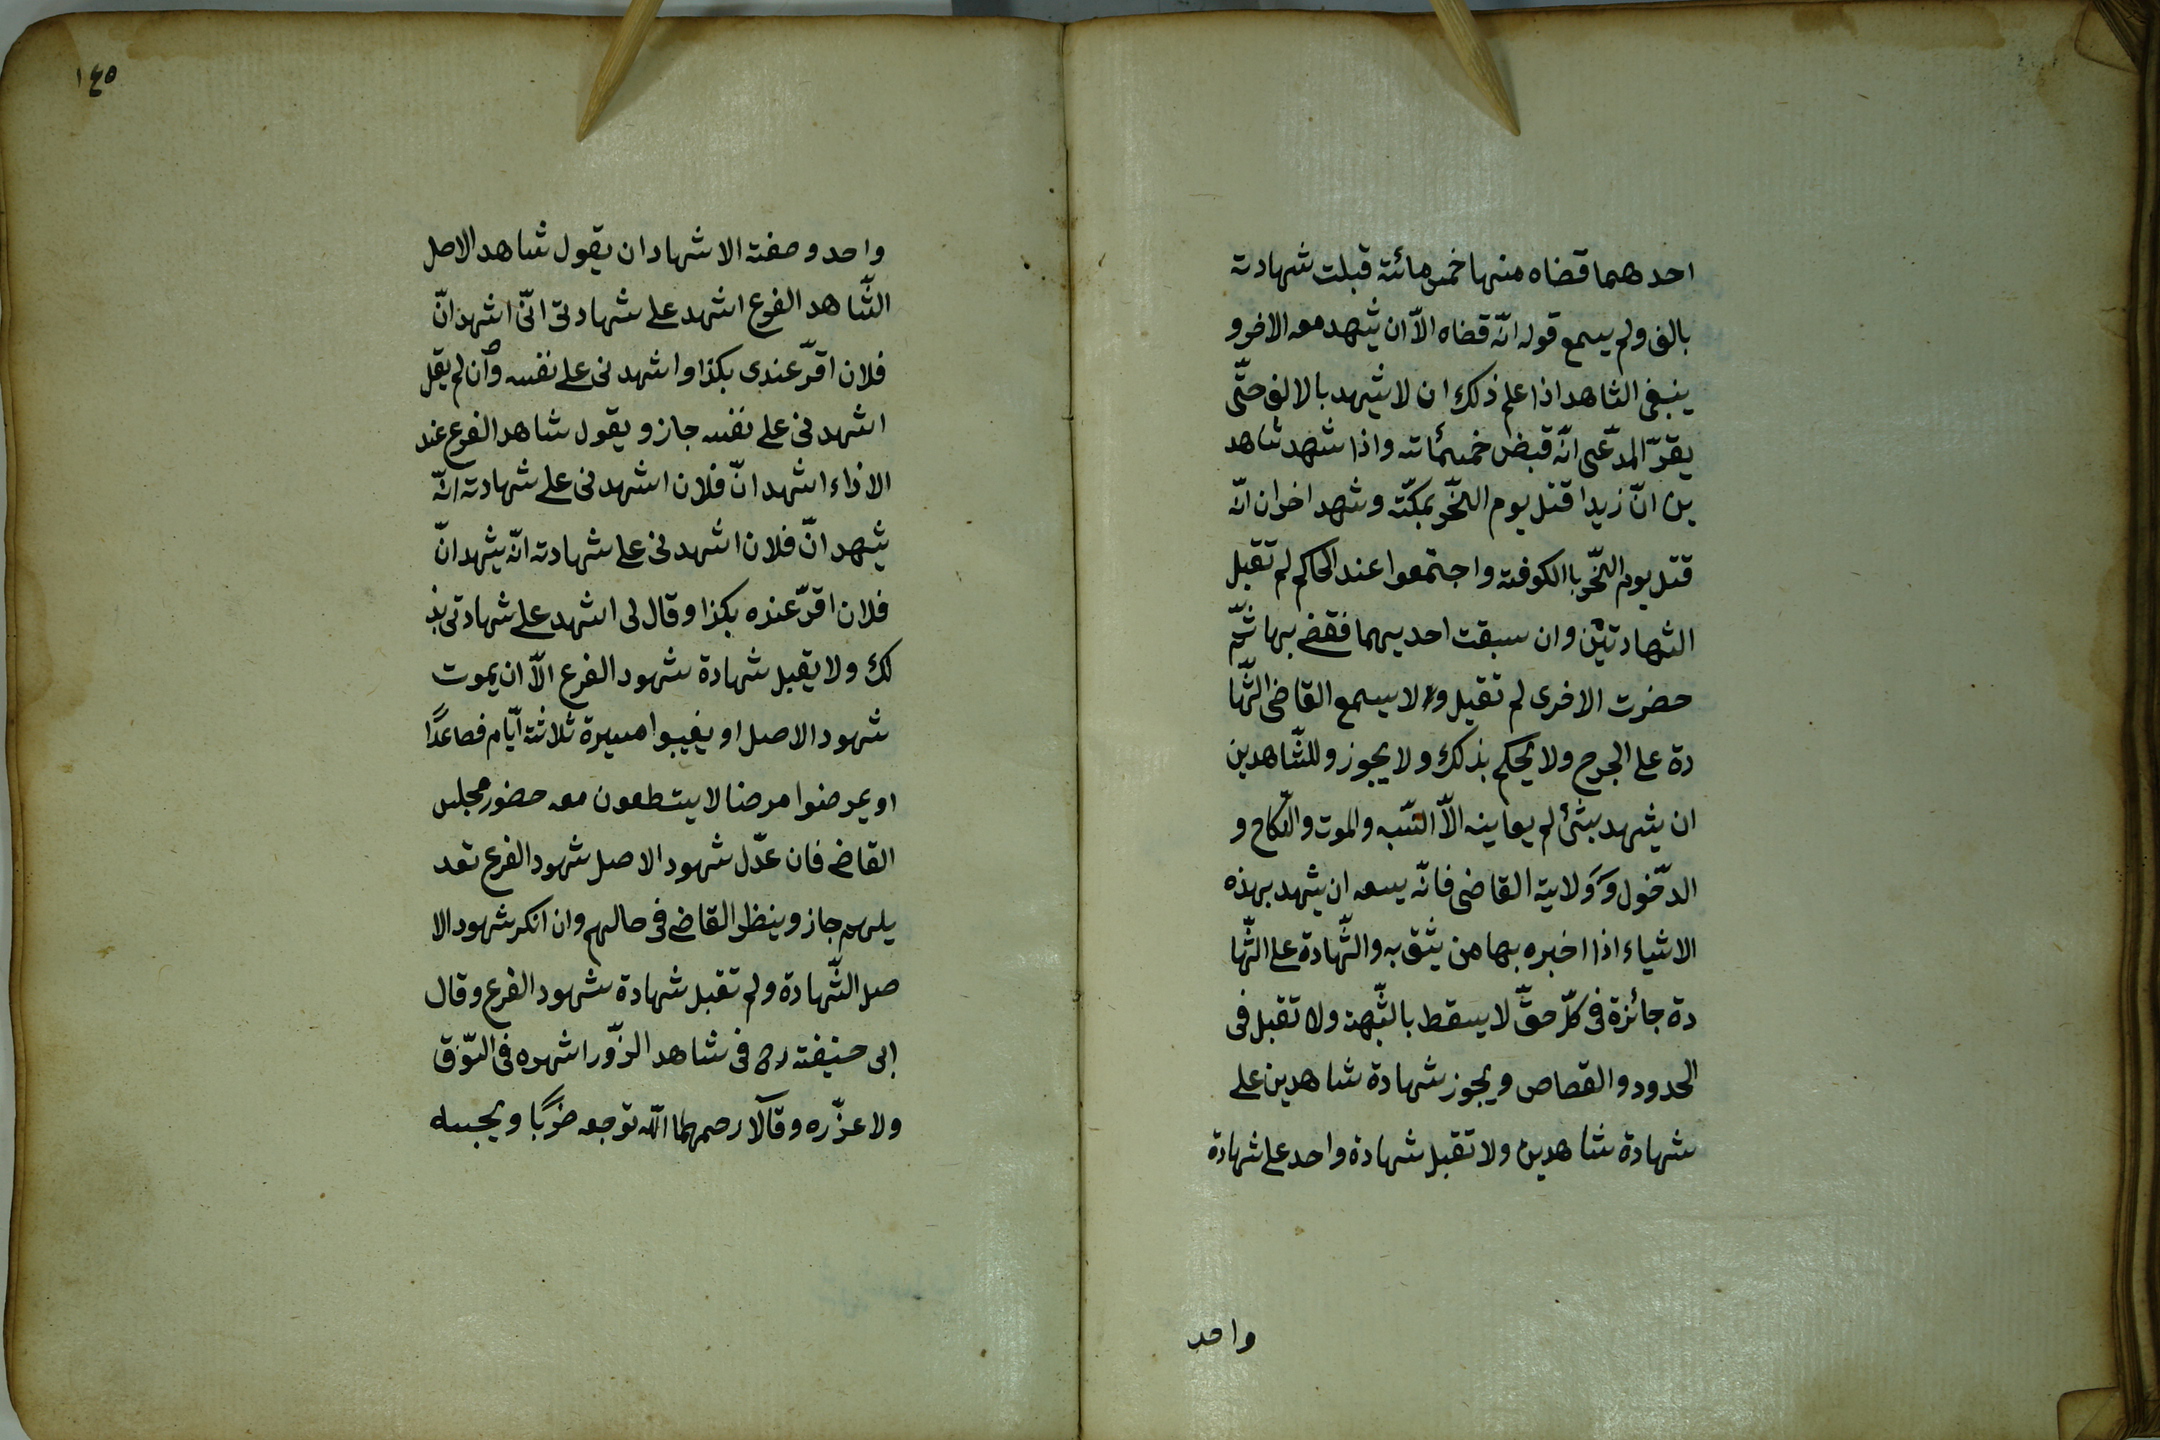 احدهما قضاه منها خمس مائة قبلت شهادته
بالف ولم يسمع قوله انّه قضاه الاّ ان يشهد معه الاخر و
ينبغى الشاهد اذا علم ذلك ان لا يشهد بالالف حتّى
يقرّ المدّعى انّه قبض خمسمائة واذا شهد شاهد
ين انّ زيدا قتل يوم النّحر بمكّة وشهد اخران انّه
قتل يوم النّحر باالكوفة واجتمعوا عند الحاكم لم تقبل
الشهادتيْن وان سبقت احديهما فقضى بها ثمّ
حضرت الاخرى لم تقبل ولا يسمع القاضى الشّها
دة على الجرح ولا يحكم بذلك ولا يجوز وللشّاهدين
ان يشهد بشئ لم يعاينه الاّ النّسب والموت والنّكاح و
الدّخول وَوَلاية القاضى فانّه يسعه ان يشهد بهذه
الاشياء اذا اخبره بها من يثق به والشّهادة على الشّها
دة جائزة فى كلّ حقّ لا يسقط بالشّبهة ولا تقبل فى
الحدود والقصاص ويجوز شهادة شاهدين على
شهادة شاهدين ولا تقبل شهادة واحد على شهادة
واحد
١٤٥
واحد وصفة الاشهاد ان يقول شاهد الاصل
الشّاهد الفرع اشهد على شهادتى انّى اشهد انّ
فلان اقرّ عندى بكذا واشهدنى على نفسه وَان لم يقل
اشهدنى على نفسه جاز ويقول شاهد الفرع عند
الاداء اشهد انّ فلان اشهدنى على شهادته انّه
يشهد انّ فلان اشهدنى على شهادته انّه يشهد انّ
فلان اقرّ عنده بكذا وقال لى اشهد على شهادتى بذ
لك ولا يقبل شهادة شهود الفرع الاّ ان يموت
شهود الاصل او يغيبوا مسيرة ثلاثة ايّام فصاعدًا
او يمرضوا مرضا لا يستطعون معه حضور مجلس
القاضى فان عدّل شهود الاصل شهود الفرع تعد
يلهم جاز وينظر القاضى فى حالهم وان انكر شهود الا
صل الشّهادة ولم تقبل شهادة شهود الفرع وقال
ابى حنيفة ره فى شاهد الزّور اشهره فى السّوق
ولا عزّره وقاَلا رحمهما اللّه توجعه ضربًا ويحبسه